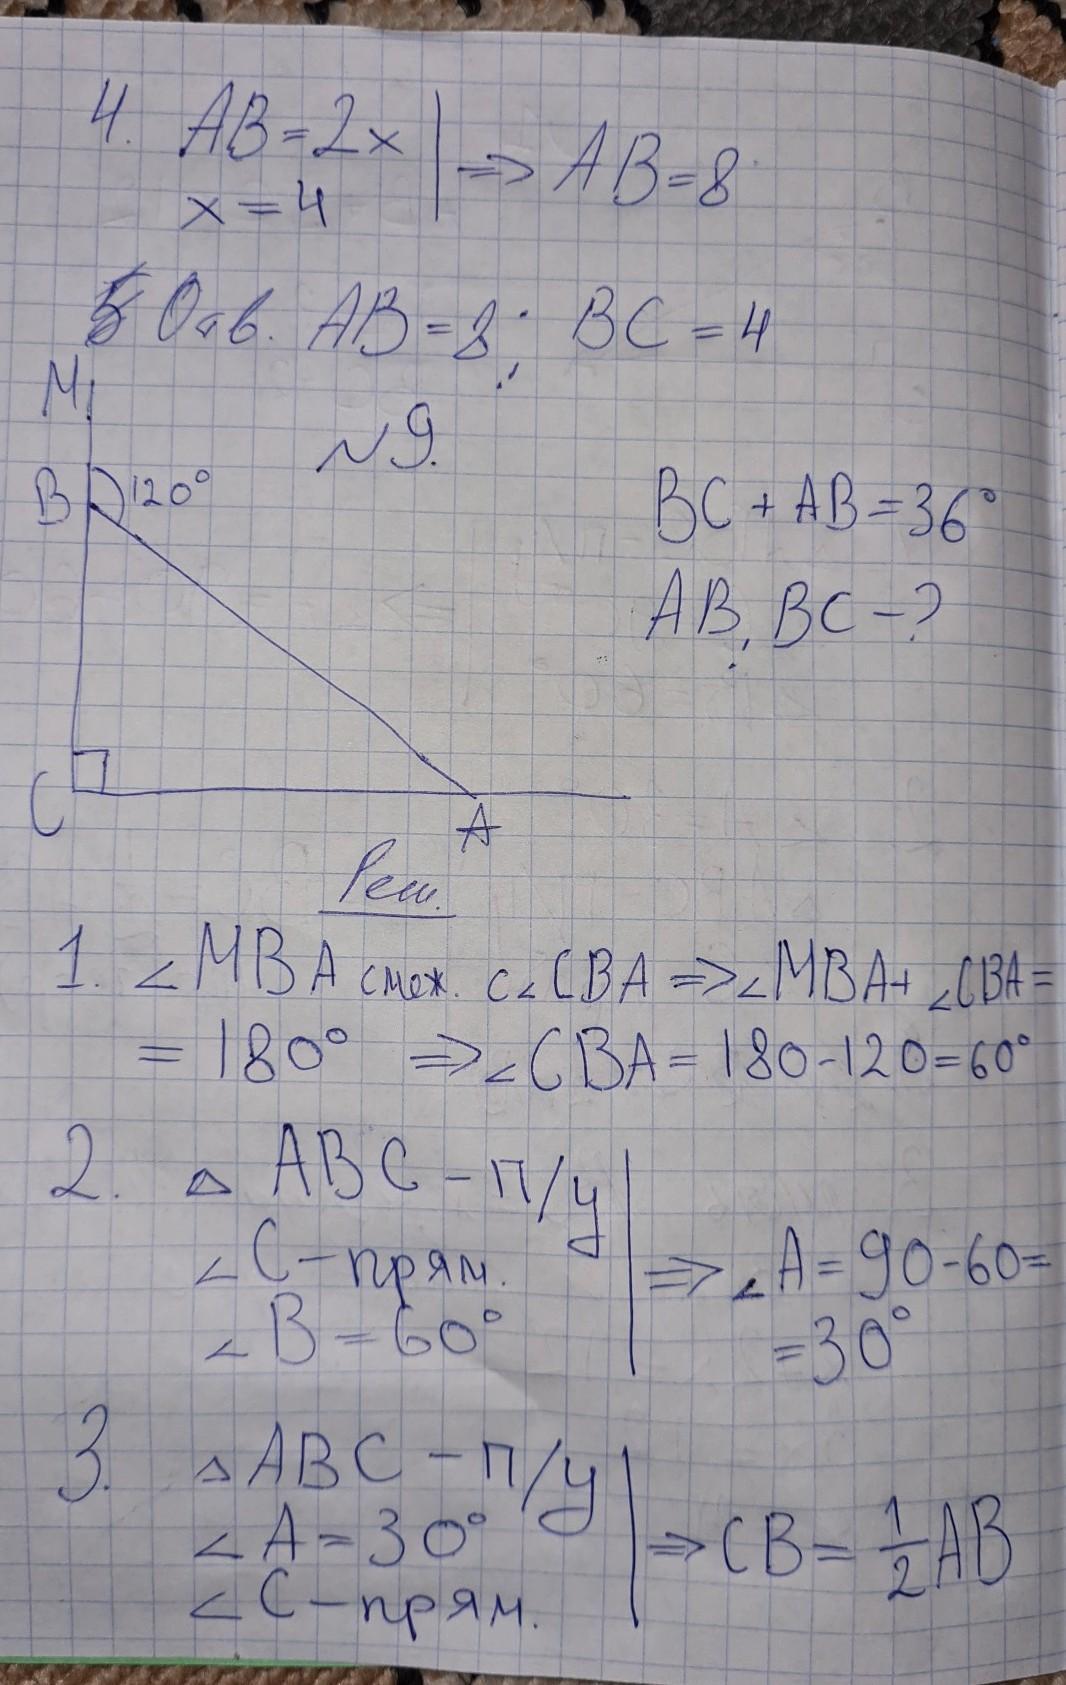 4. AB = 2x
x = 4
=> AB = 8
Отв. AB = 8; BC = 4
M
№9.
B 120°
BC + AB = 36°
AB, BC - ?
C
A
Реш.
1. ∠MBA смеж. с ∠CBA => ∠MBA + ∠CBA =
= 180° => ∠CBA = 180 - 120 = 60°
2. △ ABC - п/у
∠C - прям.
∠B = 60°
=> ∠A = 90 - 60 =
= 30°
3. △ABC - п/у
∠A = 30°
∠C - прям.
=> CB = 1/2 AB